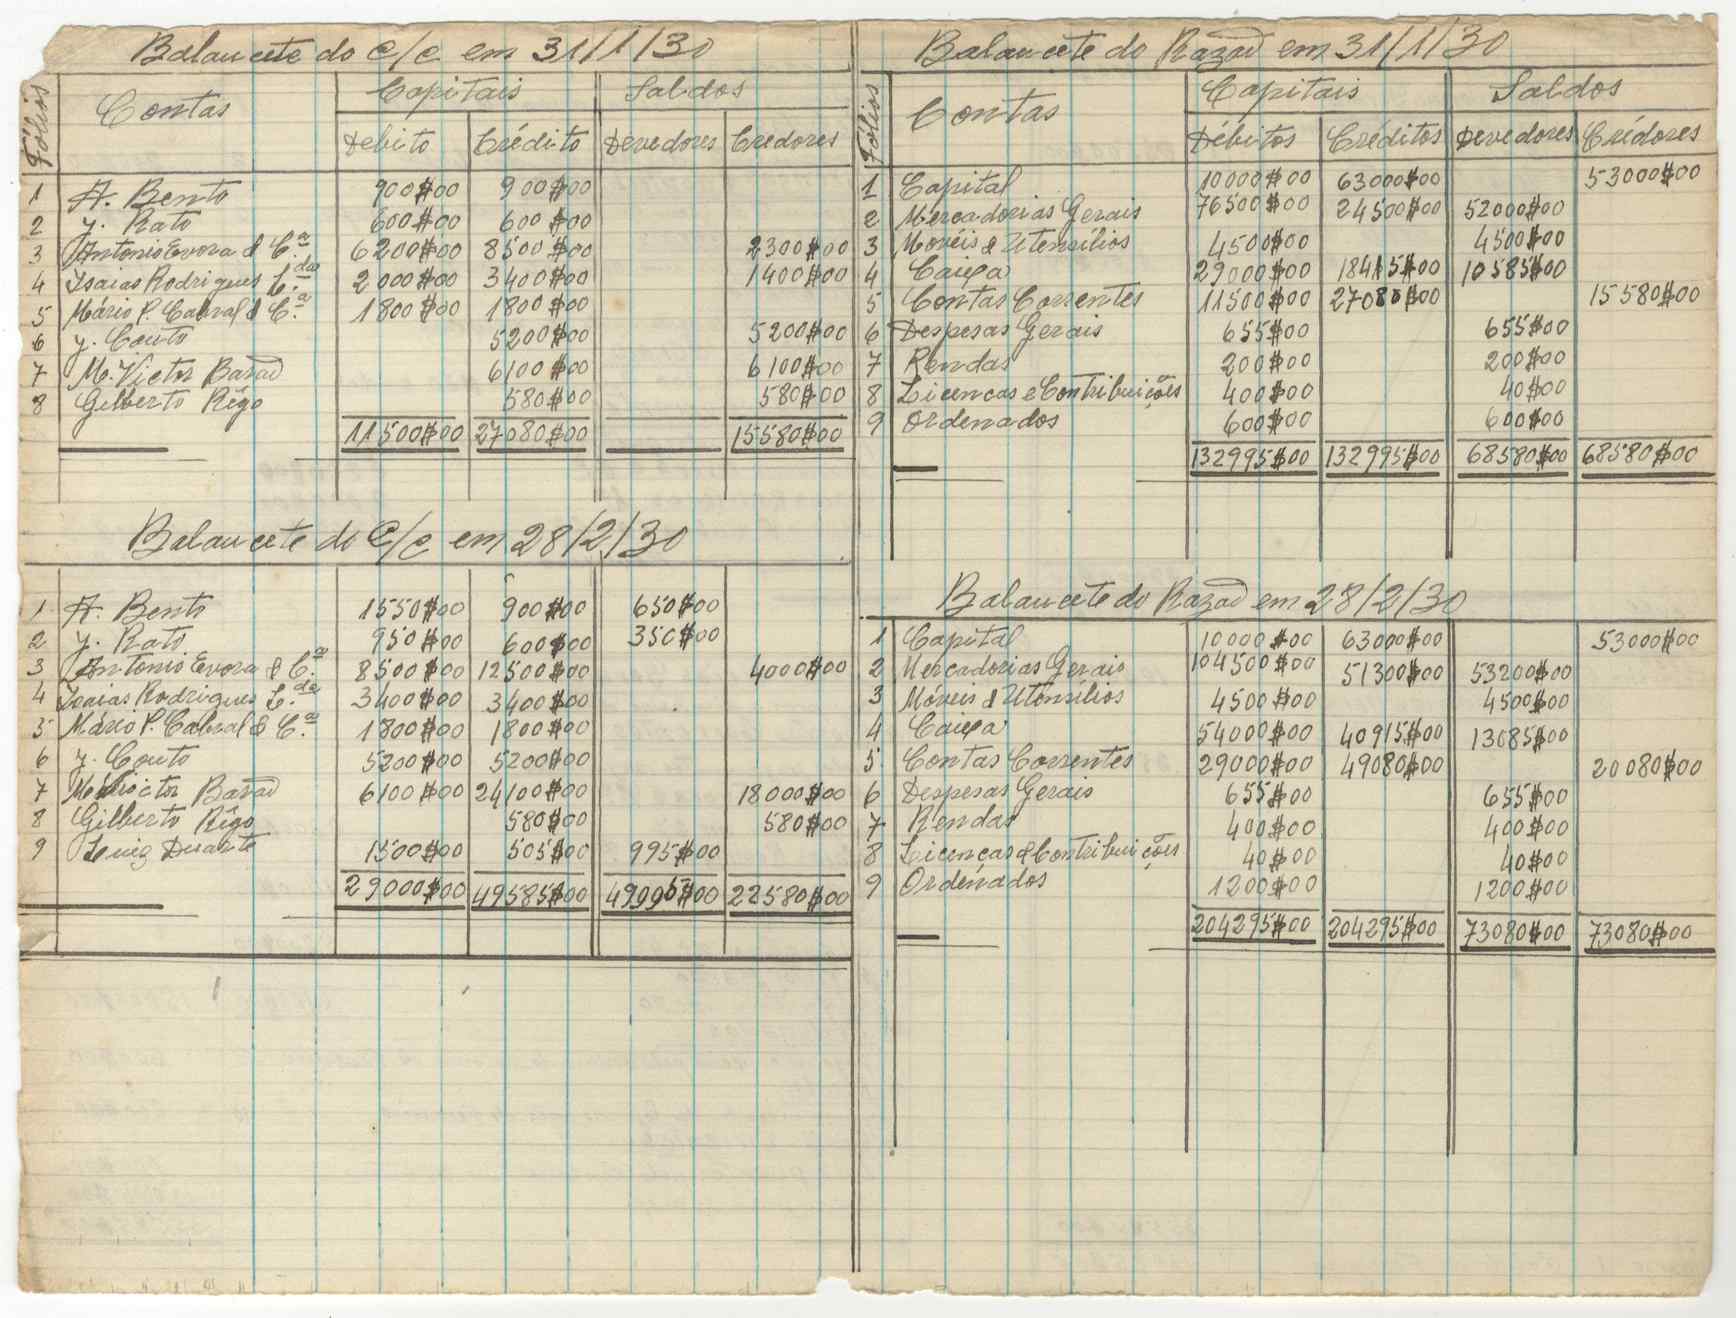 Balancete do C/c em 31/1/30
Fólios Contas Capitais Saldos
Debito Crédito Devedores Credores
1 A. Bento 900$00 900$00
2 J. Rato 600$00 600$00
3 Antonio Evora & C.ª 6200$00 8500$00 2300$00
4 Isaias Rodrigues L.da 2000$00 3400$00 1400$00
5 Mário P. Cabral & C.ª 1800$00 1800$00
6 J. Couto 5200$00 5200$00
7 M. Victor Barão 6100$00 6100$00
8 Gilberto Rêgo 580$00 580$00
11500$00 27080$00 15580$00
Balancete do C/c em 28/2/30
1 A. Bento 1550$00 900$00 650$00
2 J. Rato 950$00 600$00 350$00
3 Antonio Evora & C.ª 8500$00 12500$00 4000$00
4 Isaias Rodrigues L.da 3400$00 3400$00
5 Mário P. Cabral & C.ª 1800$00 1800$00
6 J. Couto 5200$00 5200$00
7 M. Victor Barão 6100$00 24100$00 18000$00
8 Gilberto Rêgo 580$00 580$00
9 Luiz Duarte 1500$00 505$00 995$00
29000$00 49585$00 $00 22580$00
Balancete do Razão em 31/1/30
Fólios Contas Capitais Saldos
Débitos Créditos Devedores Crédores
1 Capital 10000$00 63000$00 53000$00
2 Mercadorias Gerais 76500$00 24500$00 52000$00
3 Movéis & Utensílios 4500$00 4500$00
4 Caixa 29000$00 18415$00 10585$00
5 Contas Correntes 11500$00 27080$00 15580$00
6 Despesas Gerais 655$00 655$00
7 Rendas 200$00 200$00
8 Licencas e Contribuições 400$00 40$00
9 Ordenados 600$00 600$00
132995$00 132995$00 68580$00 68580$00
Balancete do Razão em 28/2/30
1 Capital 10000$00 63000$00 53000$00
2 Mercadorias Gerais 104500$00 51300$00 53200$00
3 Móveis & Utensílios 4500$00 4500$00
4 Caixa 54000$00 40915$00 13085$00
5 Contas Correntes 29000$00 49080$00 20080$00
6 Despesas Gerais 655$00 655$00
7 Rendas 400$00 400$00
8 Licenças & Contribuições 40$00 40$00
9 Ordenados 1200$00 1200$00
204295$00 204295$00 73080$00 73080$00